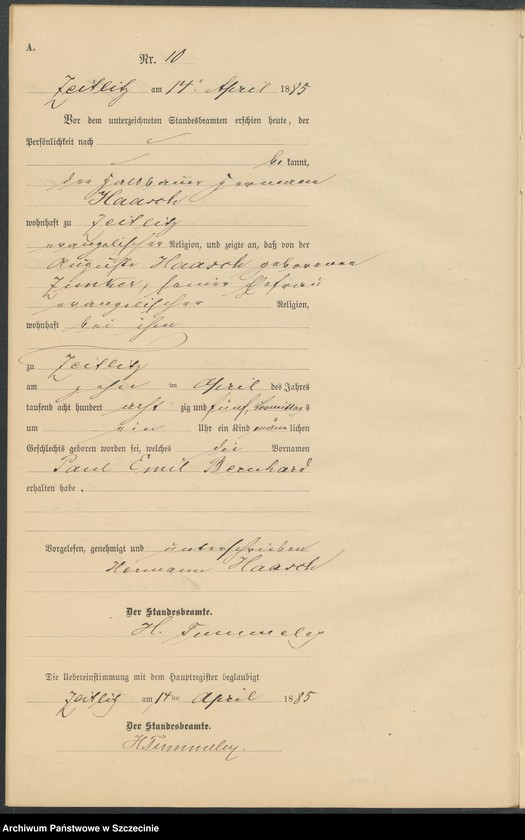 A.
Nr. 10
Zeitlitz am 14ᵗ April 1885
Vor dem unterzeichneten Standesbeamten erschien heute, der
Persönlichkeit nach
be kannt,
der Halbbauer Hermann
Haasch
wohnhaft zu Zeitlitz
evangelischer Religion, und zeigte an, daß von der
Auguste Haasch geborenen
Junker, seiner Ehefrau
evangelischer Religion,
wohnhaft bei ihm
zu Zeitlitz
am zehn ten April des Jahres
tausend acht hundert acht zig und fünf, Vormittags
um ein Uhr ein Kind männlichen
Geschlechts geboren worden sei, welches die Vornamen
Paul Emil Bernhard
erhalten habe.
Vorgelesen, genehmigt und unterschrieben
Hermann Haasch
Der Standesbeamte.
H.
Die Uebereinstimmung mit dem Hauptregister beglaubigt
Zeitlitz am 14ten April 1885
Der Standesbeamte.
H
Archiwum Państwowe w Szczecinie